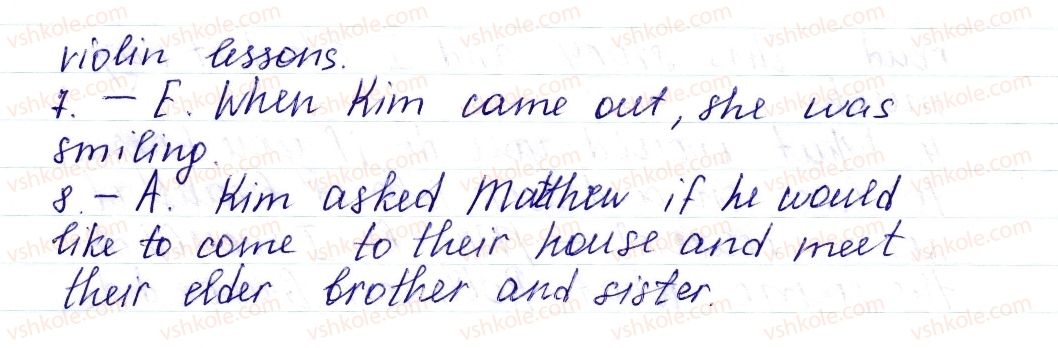 violin lessons.
7. — E. When Kim came out, she was
smiling.
8. – A. Kim asked Matthew if he would
like to come to their house and meet
their elder brother and sister.